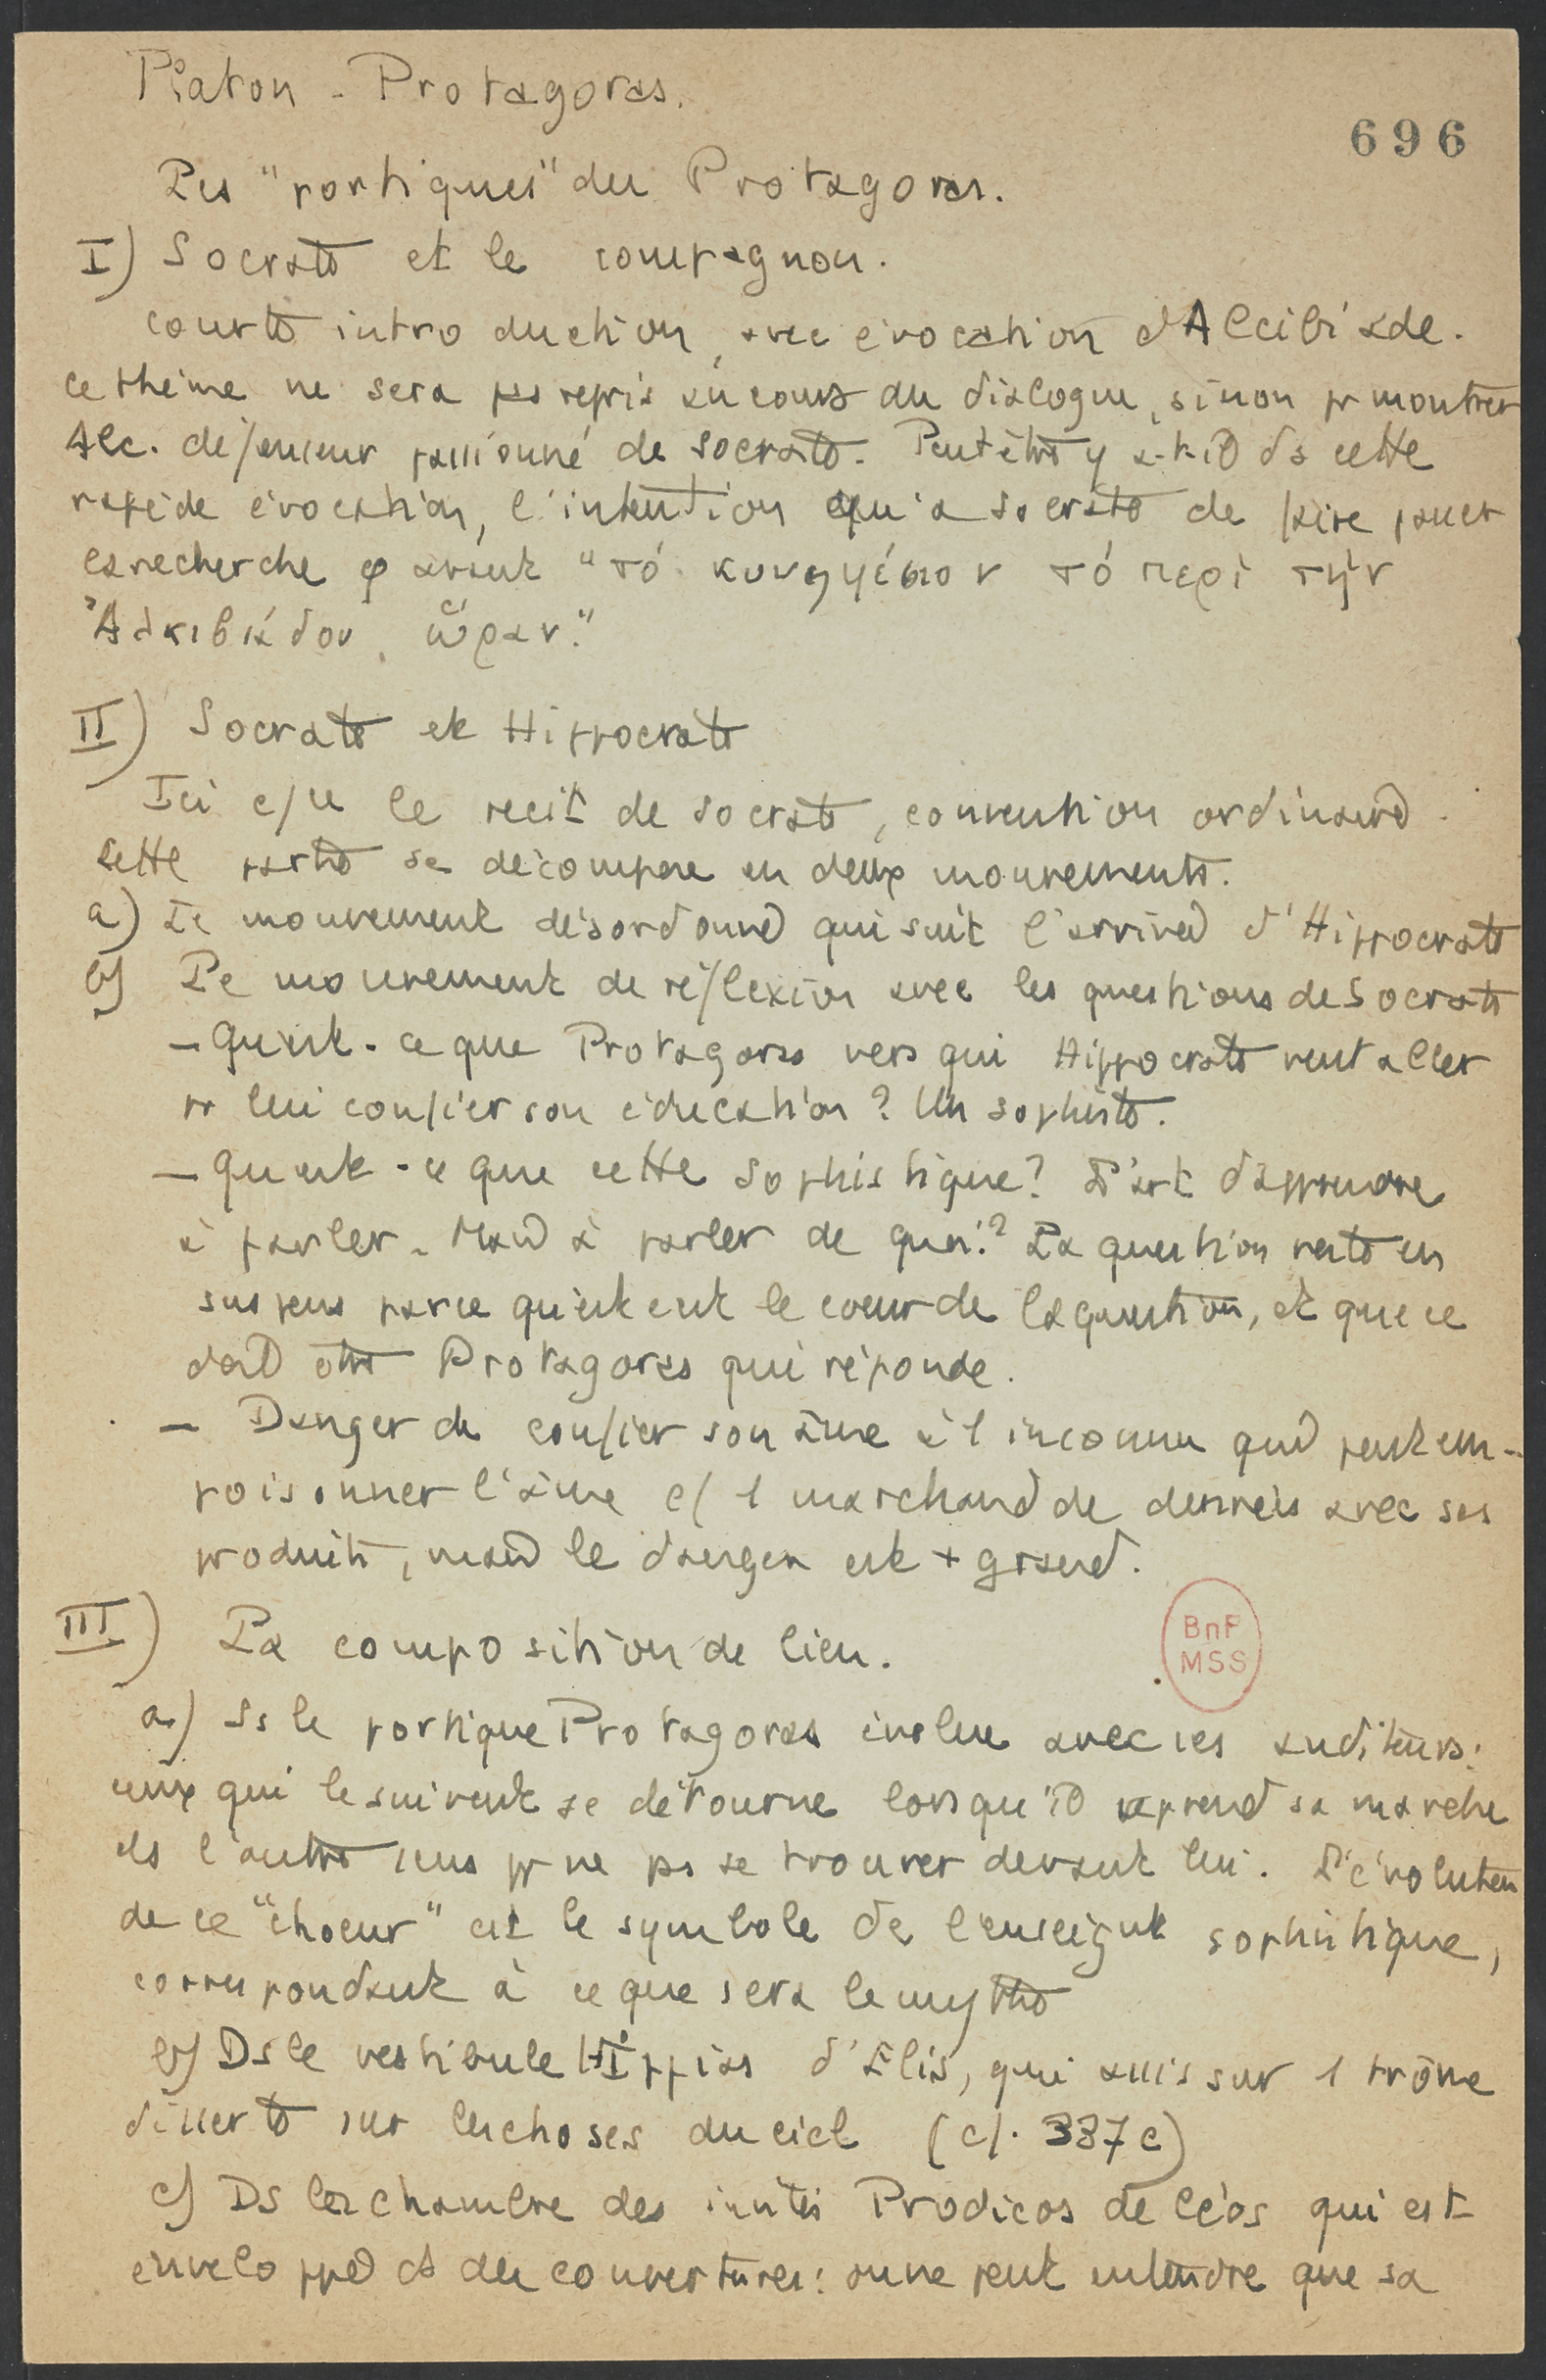 Platon - Protagoras.
696
Les "portiques" du Protagoras.
I) Socrate et le compagnon.
courte introduction, avec évocation d'Alcibiade.
ce thème ne sera pas repris au cours du dialogue, sinon pr montrer
Alc. défenseur passionné de Socrate. Peut être y a-t-il ds cette
rapide évocation, l'intention qu'a Socrate de faire passer
la recherche φ avant "τό κυνηγέσιον τό περί τήν
Ἀλκιβιάδου ὥραν."
II) Socrate et Hippocrate
Ici c/ce le récit de Socrate, convention ordinaire.
Cette partie se décompose en deux mouvements.
a) Le mouvement désordonné qui suit l'arrivée d'Hippocrate
b) Le mouvement de réflexion avec les questions de Socrate
- Qu'est-ce que Protagoras vers qui Hippocrate veut aller
pr lui confier son éducation? Un sophiste.
- Qu'est-ce que cette sophistique? L'art d'apprendre
à parler. Mais à parler de quoi? La question reste en
suspens parce qu'est est le coeur de la question, et que ce
doit être Protagoras qui réponde.
- Danger de confier son âme à 1 inconnu qui peut em-
poisonner l'âme c/ 1 marchand de denrées avec ses
produits, mais le danger est + grand.
III) La composition de lieu.
BnF
MSS
a) Ss le portique Protagoras évolue avec ses auditeurs:
ceux qui le suivent se détourne lorsqu'il reprend sa marche
ds l'autre sens pr ne pas se trouver devant lui. L'évolution
de ce "choeur" est le symbole de l'enseignt sophistique,
correspondant à ce que sera le mythe
b) Ds le vestibule Hippias d'Elis, qui assis sur 1 trône
disserte sur les choses du ciel (cf. 337c)
c) Ds la chambre des invités Prodicos de Céos qui est
enveloppé ds des couvertures: on ne peut entendre que sa